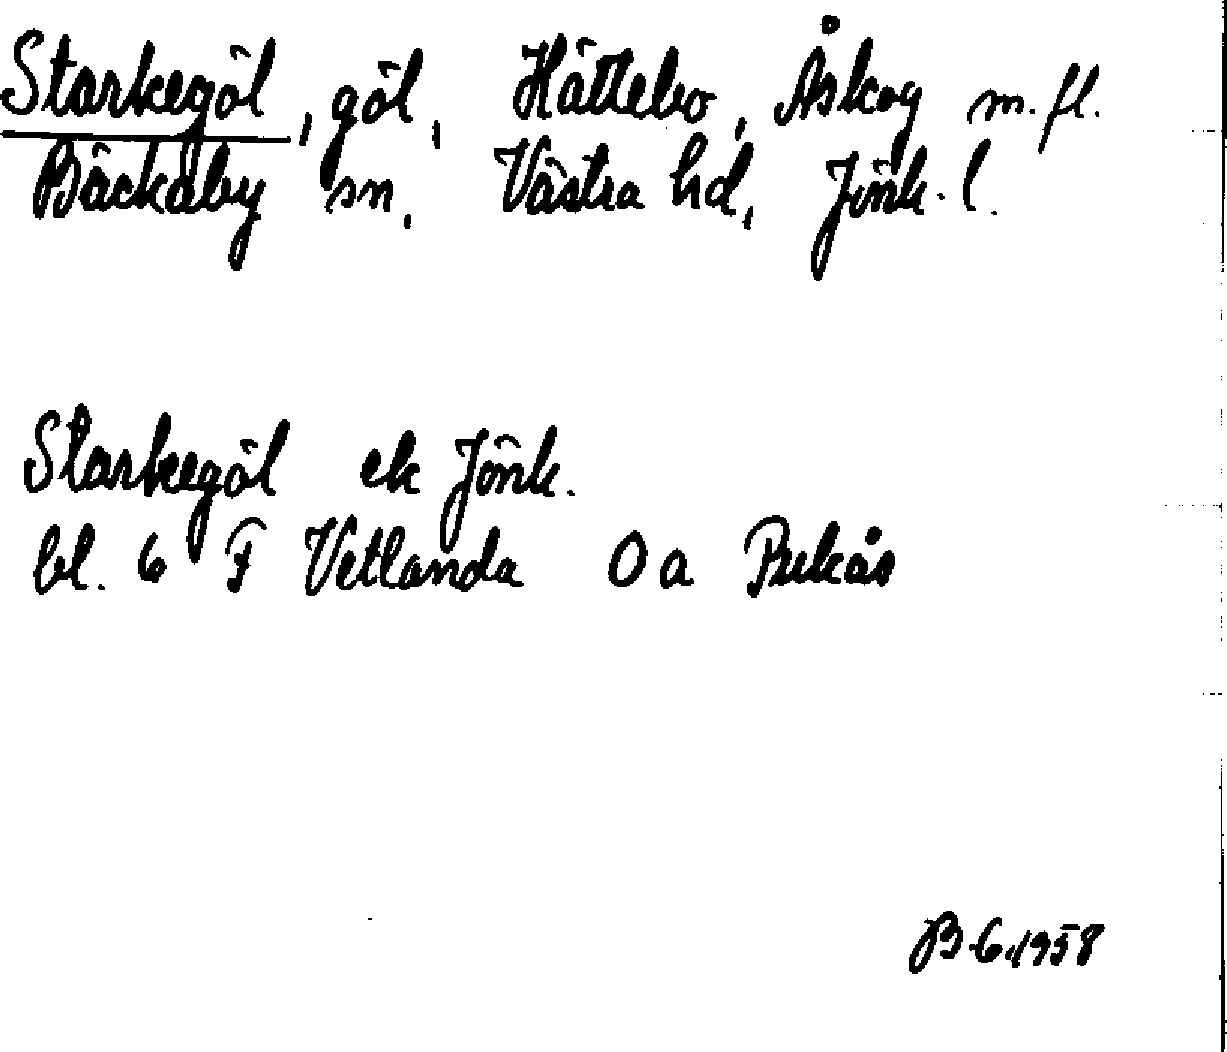 Starkegöl, göl, Hättebo, Åskog m.fl.
Bäckaby sn, Västra hd, Jönk. l.
Starkegöl ek Jönk.
bl. 6 F Vetlanda 0 a Pukås
B-G. 1958